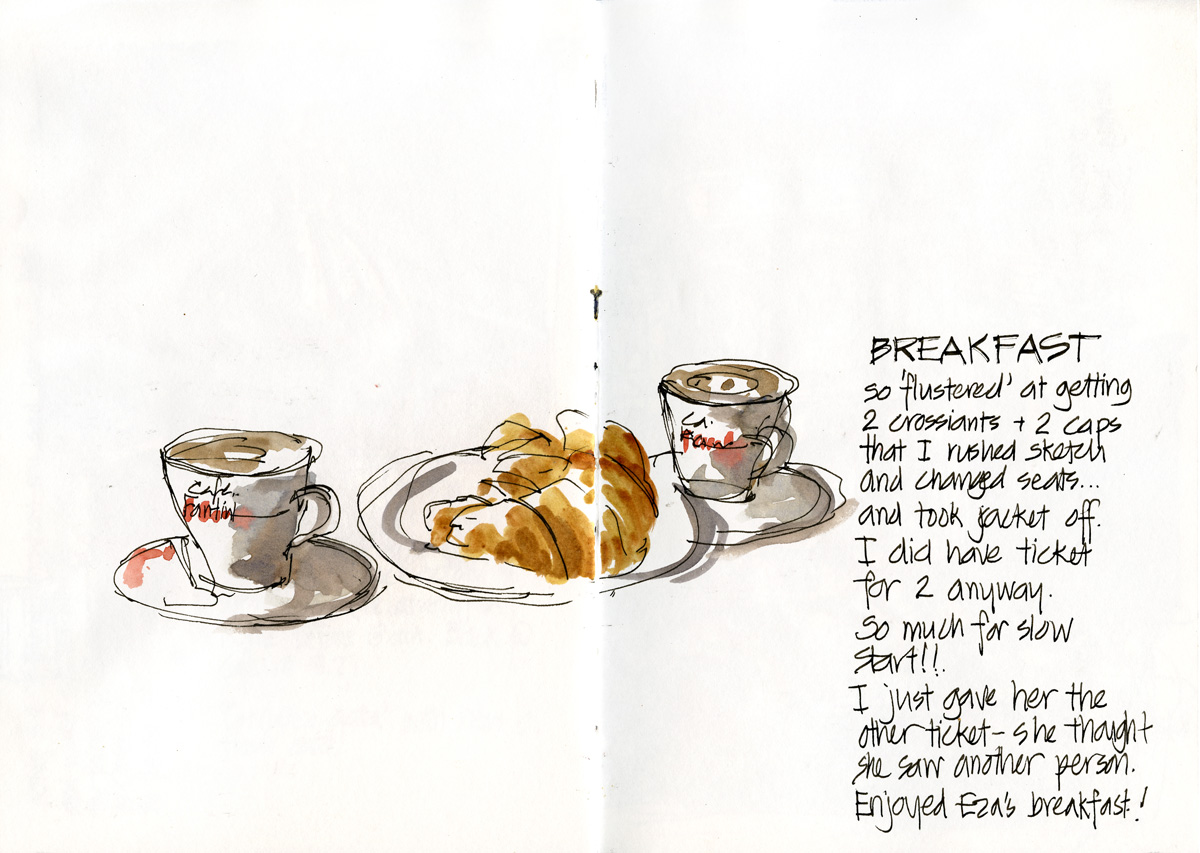 Café
Fantin
Ca.
BREAKFAST
so 'flustered' at getting
2 crossiants + 2 caps
that I rushed sketch
and changed seats...
and took jacket off.
I did have ticket
for 2 anyway.
So much for slow
start!!.
I just gave her the
other ticket – she thought
she saw another person.
Enjoyed Eza's breakfast!